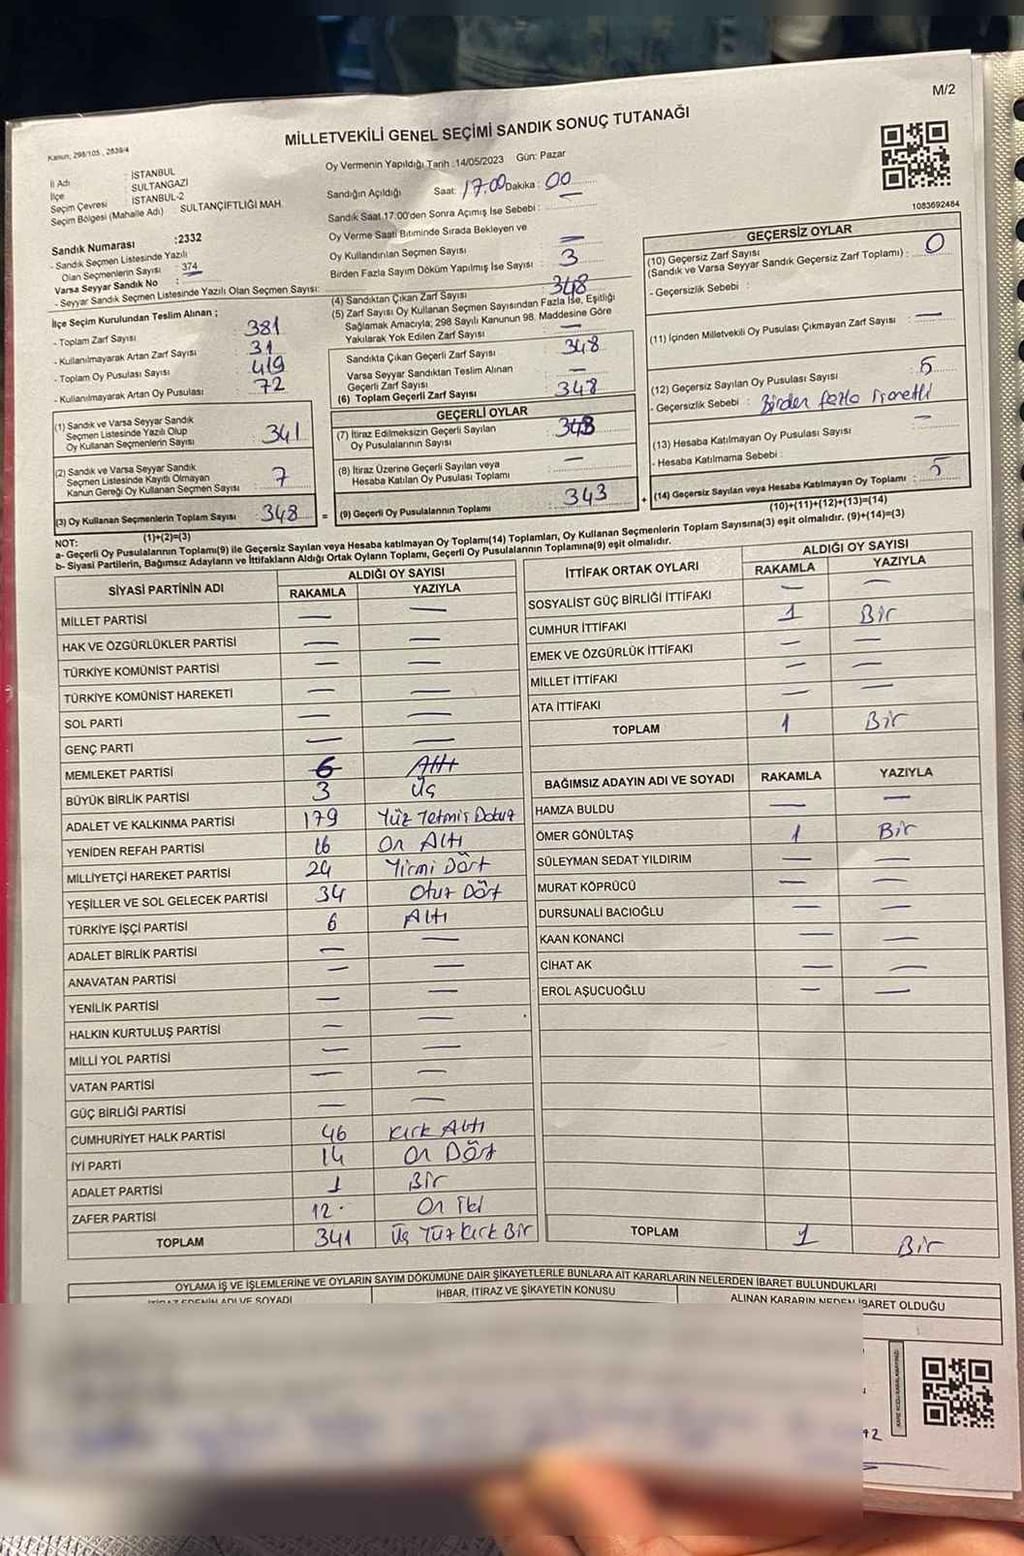 M/2
MİLLETVEKİLİ GENEL SEÇİMİ SANDIK SONUÇ TUTANAĞI
Kanun; 298/105 , 2839/4
İl Adı : İSTANBUL
İlçe : SULTANGAZİ
Seçim Çevresi : İSTANBUL-2
Seçim Bölgesi (Mahalle Adı) SULTANÇİFTLİĞİ MAH.
Sandık Numarası :2332
- Sandık Seçmen Listesinde Yazılı
Olan Seçmenlerin Sayısı : 374
Varsa Seyyar Sandık No :
- Seyyar Sandık Seçmen Listesinde Yazılı Olan Seçmen Sayısı:
İlçe Seçim Kurulundan Teslim Alınan ;
- Toplam Zarf Sayısı : 381
- Kullanılmayarak Artan Zarf Sayısı : 31
- Toplam Oy Pusulası Sayısı : 419
- Kullanılmayarak Artan Oy Pusulası : 72
(1) Sandık ve Varsa Seyyar Sandık
Seçmen Listesinde Yazılı Olup
Oy Kullanan Seçmenlerin Sayısı : 341
(2) Sandık ve Varsa Seyyar Sandık
Seçmen Listesinde Kayıtlı Olmayan
Kanun Gereği Oy Kullanan Seçmen Sayısı : 7
(3) Oy Kullanan Seçmenlerin Toplam Sayısı : 348 =
(1)+(2)=(3)
Oy Vermenin Yapıldığı Tarih :14/05/2023 Gün: Pazar
Sandığın Açıldığı Saat: 17.00 Dakika : 00
Sandık Saat 17:00'den Sonra Açımış İse Sebebi :
Oy Verme Saati Bitiminde Sırada Bekleyen ve
Oy Kullandırılan Seçmen Sayısı : —
Birden Fazla Sayım Döküm Yapılmış İse Sayısı : 3
(4) Sandıktan Çıkan Zarf Sayısı : 348
(5) Zarf Sayısı Oy Kullanan Seçmen Sayısından Fazla İse, Eşitliği
Sağlamak Amacıyla; 298 Sayılı Kanunun 98. Maddesine Göre
Yakılarak Yok Edilen Zarf Sayısı : —
Sandıkta Çıkan Geçerli Zarf Sayısı : 348
Varsa Seyyar Sandıktan Teslim Alınan
Geçerli Zarf Sayısı : —
(6) Toplam Geçerli Zarf Sayısı : 348
GEÇERLİ OYLAR
(7) İtiraz Edilmeksizin Geçerli Sayılan
Oy Pusulalarının Sayısı : 343
(8) İtiraz Üzerine Geçerli Sayılan veya
Hesaba Katılan Oy Pusulası Toplamı : —
(9) Geçerli Oy Pusulalarının Toplamı : 343 +
1083692484
GEÇERSİZ OYLAR
(10) Geçersiz Zarf Sayısı
(Sandık ve Varsa Seyyar Sandık Geçersiz Zarf Toplamı) : 0
- Geçersizlik Sebebi :
(11) İçinden Milletvekili Oy Pusulası Çıkmayan Zarf Sayısı : —
(12) Geçersiz Sayılan Oy Pusulası Sayısı : 5
- Geçersizlik Sebebi : Birden fazla işaretli
(13) Hesaba Katılmayan Oy Pusulası Sayısı : —
- Hesaba Katılmama Sebebi :
(14) Geçersiz Sayılan veya Hesaba Katılmayan Oy Toplamı : 5
(10)+(11)+(12)+(13)=(14)
NOT:
a- Geçerli Oy Pusulalarının Toplamı(9) ile Geçersiz Sayılan veya Hesaba katılmayan Oy Toplamı(14) Toplamları, Oy Kullanan Seçmenlerin Toplam Sayısına(3) eşit olmalıdır. (9)+(14)=(3)
b- Siyasi Partilerin, Bağımsız Adayların ve İttifakların Aldığı Ortak Oyların Toplamı, Geçerli Oy Pusulalarının Toplamına(9) eşit olmalıdır.
SİYASİ PARTİNİN ADI ALDIĞI OY SAYISI
RAKAMLA YAZIYLA
MİLLET PARTİSİ — —
HAK VE ÖZGÜRLÜKLER PARTİSİ — —
TÜRKİYE KOMÜNİST PARTİSİ — —
TÜRKİYE KOMÜNİST HAREKETİ — —
SOL PARTİ — —
GENÇ PARTİ — —
MEMLEKET PARTİSİ 6 Altı
BÜYÜK BİRLİK PARTİSİ 3 Üç
ADALET VE KALKINMA PARTİSİ 179 Yüz Yetmiş Dokuz
YENİDEN REFAH PARTİSİ 16 On Altı
MİLLİYETÇİ HAREKET PARTİSİ 24 Yirmi Dört
YEŞİLLER VE SOL GELECEK PARTİSİ 34 Otuz Dört
TÜRKİYE İŞÇİ PARTİSİ 6 Altı
ADALET BİRLİK PARTİSİ — —
ANAVATAN PARTİSİ — —
YENİLİK PARTİSİ — —
HALKIN KURTULUŞ PARTİSİ —
MİLLİ YOL PARTİSİ — —
VATAN PARTİSİ — —
GÜÇ BİRLİĞİ PARTİSİ — —
CUMHURİYET HALK PARTİSİ 46 Kırk Altı
İYİ PARTİ 14 On Dört
ADALET PARTİSİ 1 Bir
ZAFER PARTİSİ 12 On İki
TOPLAM 341 Üç Yüz Kırk Bir
İTTİFAK ORTAK OYLARI ALDIĞI OY SAYISI
RAKAMLA YAZIYLA
SOSYALİST GÜÇ BİRLİĞİ İTTİFAKI — —
CUMHUR İTTİFAKI 1 Bir
EMEK VE ÖZGÜRLÜK İTTİFAKI — —
MİLLET İTTİFAKI — —
ATA İTTİFAKI — —
TOPLAM 1 Bir
BAĞIMSIZ ADAYIN ADI VE SOYADI RAKAMLA YAZIYLA
HAMZA BULDU — —
ÖMER GÖNÜLTAŞ 1 Bir
SÜLEYMAN SEDAT YILDIRIM — —
MURAT KÖPRÜCÜ — —
DURSUNALİ BACIOĞLU — —
KAAN KONANCİ — —
CİHAT AK — —
EROL AŞUCUOĞLU — —
TOPLAM 1 Bir
OYLAMA İŞ VE İŞLEMLERİNE VE OYLARIN SAYIM DÖKÜMÜNE DAİR ŞİKAYETLERLE BUNLARA AİT KARARLARIN NELERDEN İBARET BULUNDUKLARI
İTİRAZ EDENİN ADI VE SOYADI İHBAR, İTİRAZ VE ŞİKAYETİN KONUSU ALINAN KARARIN NEDEN İBARET OLDUĞU